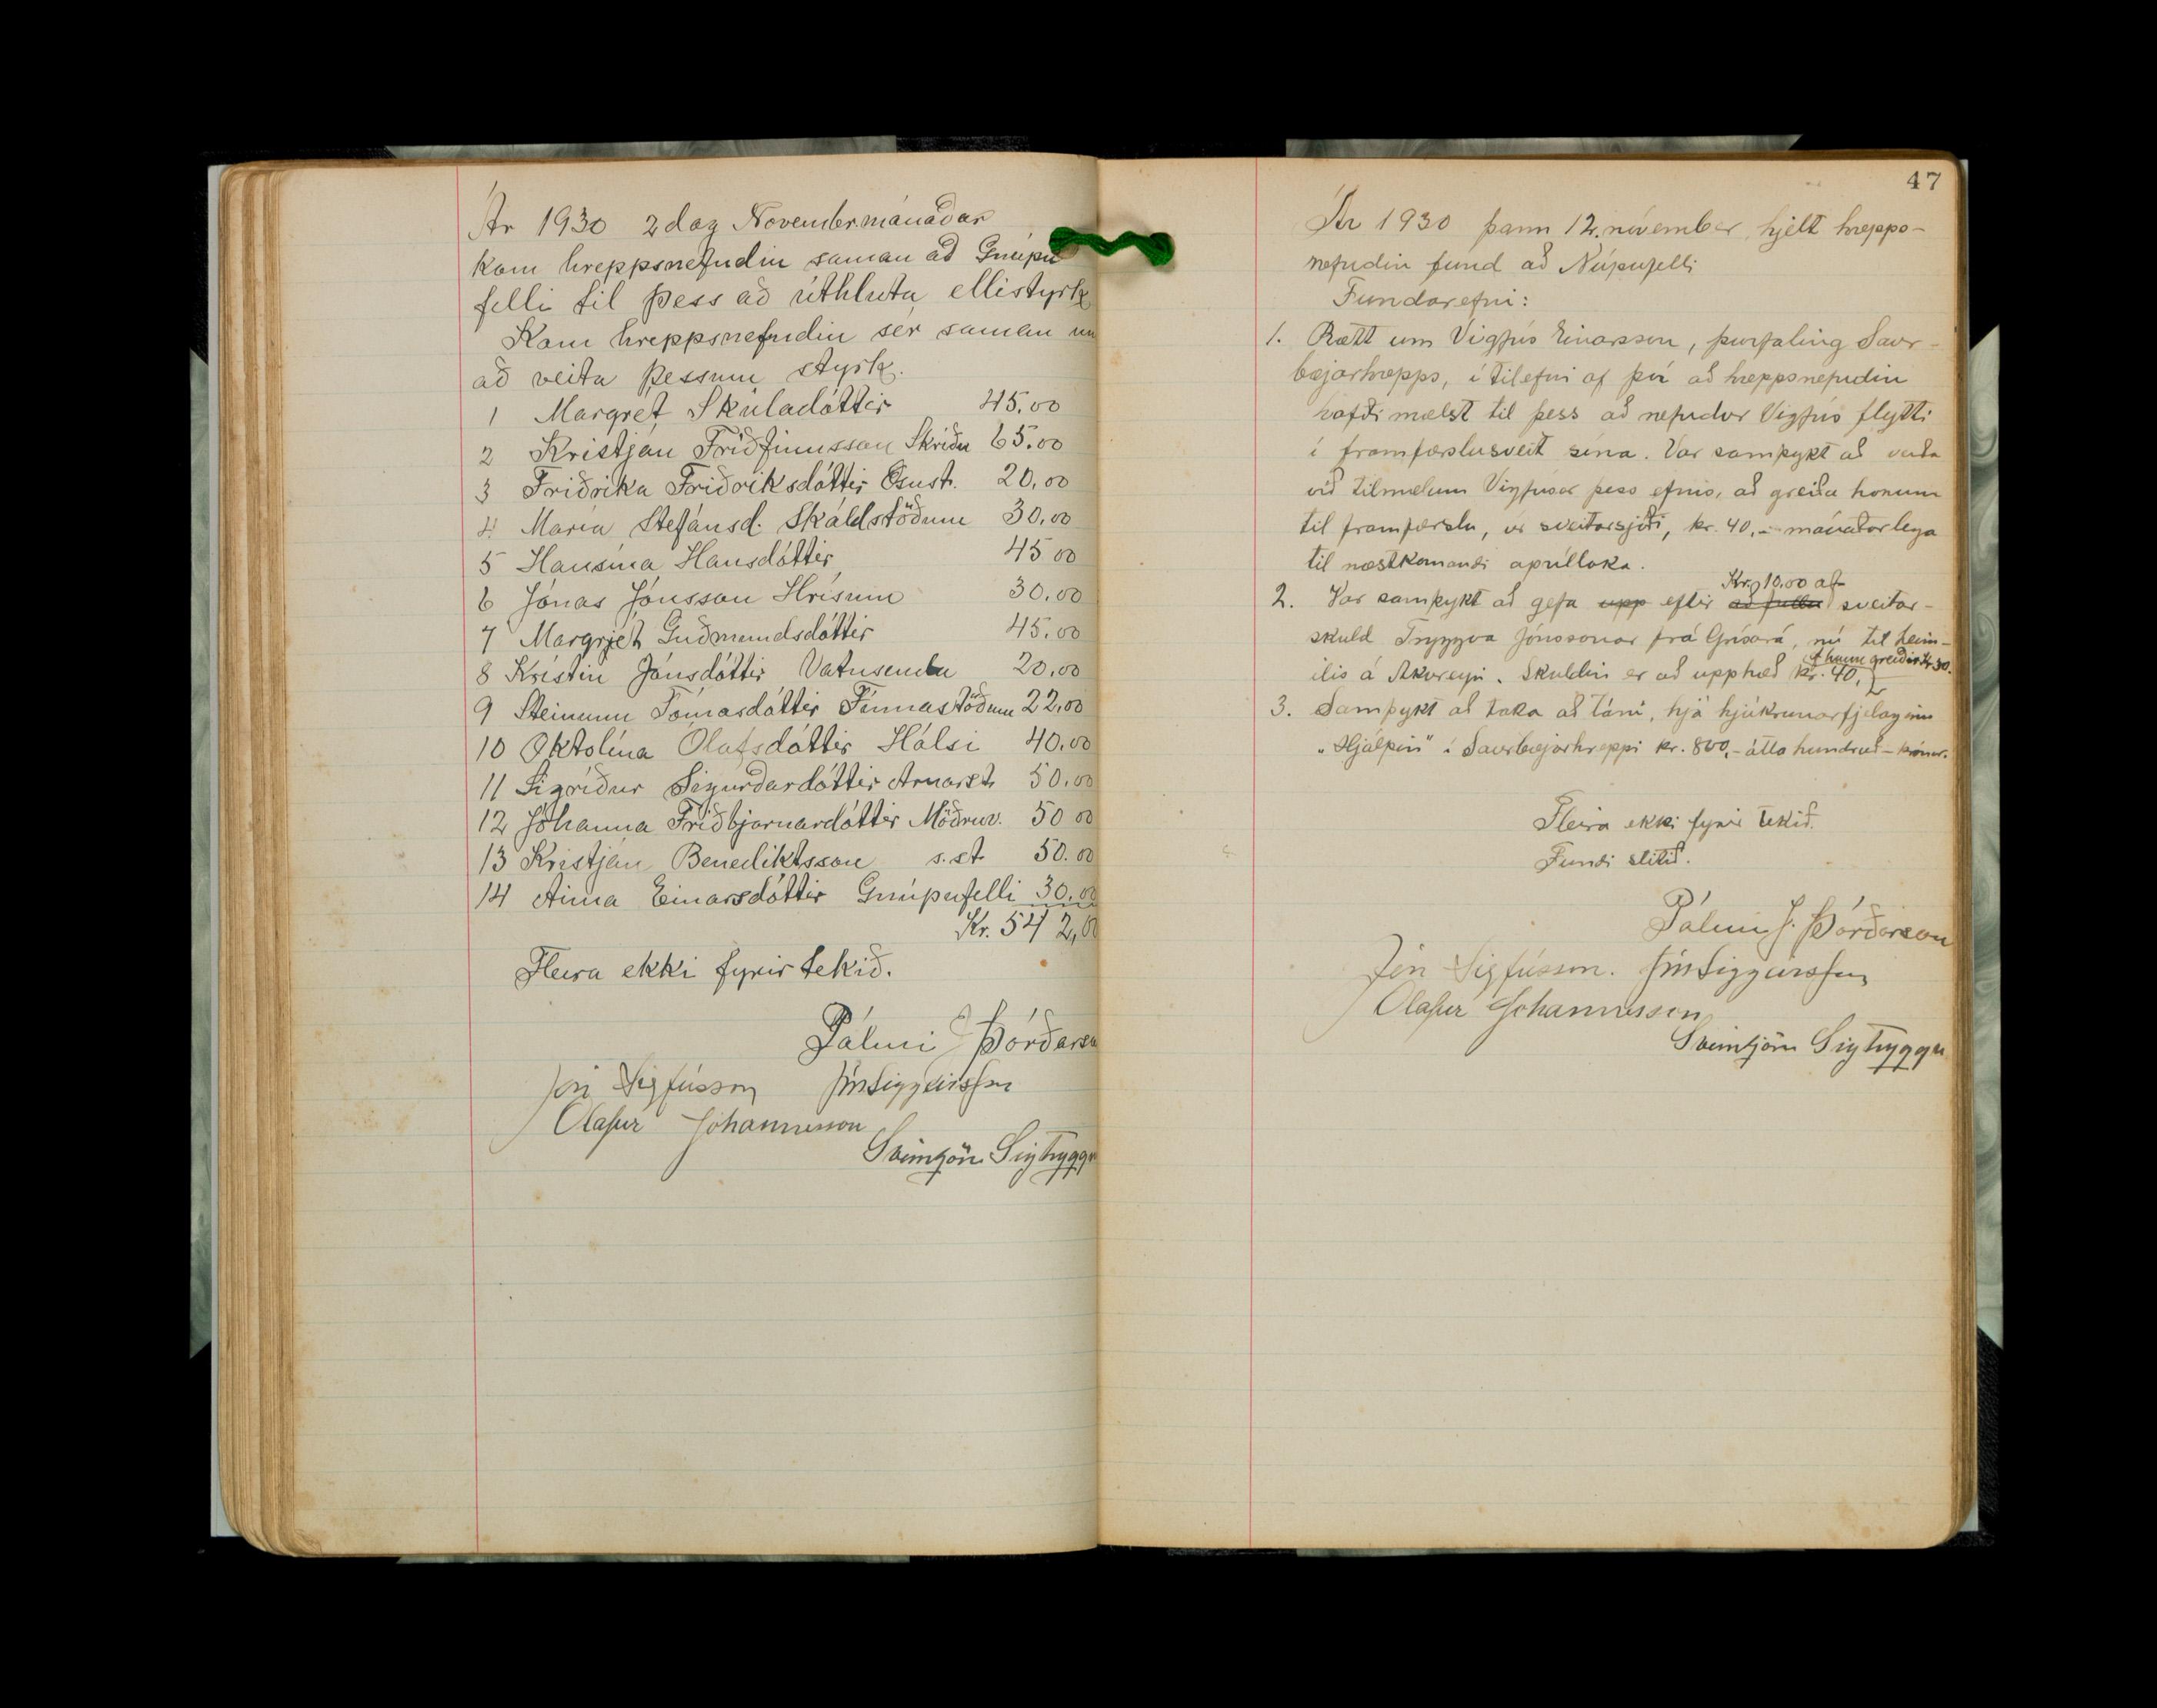 Ár 1930 2 dag Novembermánaðar
kom hreppsnefndin saman að Gnúpu
felli til þess að úthluta ellistyrk
Kom hreppsnefndin sér saman um
að veita þessum styrk.
1 Margrét Skúladóttir 45.00
2 Kristján Friðfinnsson Skriðu 65.00
3 Friðrika Friðriksdóttir Ösust. 20,00
4 María Stefánsd. Skáldstöðum 30,00
5 Hansína Hansdóttir 45 00
6 Jónas Jónsson Hrísum 30.00
7 Margrjet Guðmundsdóttir 45.00
8 Kristín Jónsdóttir Vatnsenda 20,00
9 Steinunn Tómasdóttir Finnastöðum 22,00
10 Oktolína Ólafsdóttir Hálsi 40.00
11 Sigríður Sigurðardóttir Arnarst. 50.00
12 Jóhanna Friðbjarnardóttir Möðruv. 50 00
13 Kristján Benediktsson s.st. 50.00
14 Anna Einarsdóttir Gnúpufelli 30,00
Kr. 542,0
Fleira ekki fyrir tekið.
Pálmi J Þórðarson
Jón Sigfússon JónSiggeirsson
Ólafur Jóhannesson
Sveinbjörn Sigtryggs
47
Ár 1930 þann 12. nóvember, hjelt hrepps-
nefndin fund að Núpufelli
Fundarefni:
1. Rætt um Vigfús Einarsson, þurfaling Saur-
bæjarhrepps, í tilefni af því að hreppsnefndin
hafði mælst til þess að nefndur Vigfús flytti
í framfærslusveit sína. Var samþykt að verða
við tilmælum Vigfúsar þess efnis, að greiða honum
til framfærslu, úr sveitarsjóði, kr. 40.- mánaðarlega
til næstkomandi aprílloka.
Kr. 10.00 af
2. Var samþykt að gefa upp eftir að fullu sveitar-
skuld Tryggva Jónssonar frá Grísará, nú til heim-
ilis á Akureyri. Skuldin er að upphæð kr. 40,
hann greiðir kr 30.
3. Samþykt að taka að láni, hjá hjúkrunarfjelaginu
„Hjálpin" í Saurbæjarhreppi kr. 800,- átta hundruð - krónur.
Fleira ekki fyrir tekið.
Fundi slitið.
Pálmi J. Þórðarson
Jón Sigfússon. JónSiggeirsson
Ólafur Jóhannesson
Sveinbjörn Sigtryggs